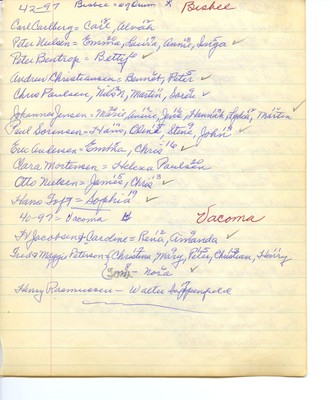 42-97 Bisbee = X Bisbee
Carl Carlberg = Carl, Alvah
Peter Nielsen = Emma, Laura, Annie, Inga ✓
Peter Bentrop = Betty ✓
Andrew Christiansen = Bennet, Peter ✓
Chris Paulsen, Martin, Sarah ✓
Johannes Jensen = Marie, Annie, Jens, Hannah, Lydia, Martin ✓
Paul Sorensen = Hans, Stene, John ✓
Eric Andersen = Emma, Chris 16 ✓
Clara Mortensen = Helena Paulsen
Otto Nielsen = James, Chris 13 ✓
Hans Toft = Sophia 17 ✓
40-97 = Vacoma Vacoma
Jacobsen & Caroline = Rena, Amanda ✓
Fred & Maggie Peterson = Christina, Mary, Peter, Christian, Henry
Nora ✓
Henry Rasmussen - Walter